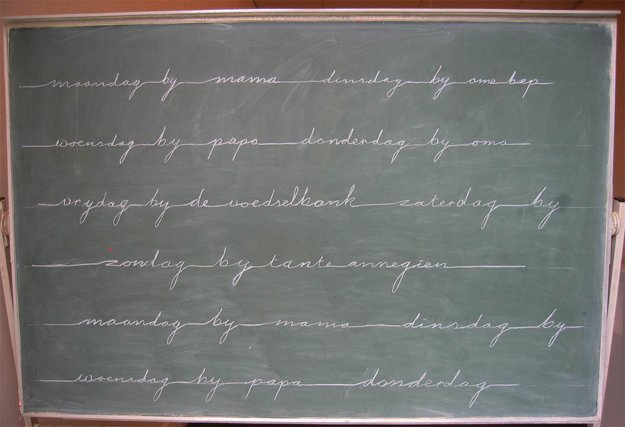 maandag by mama dinsdag by ome bep
woensdag by papa donderdag by oma
vrydag by de voedselbank zaterdag by
zondag by tante annegien
maandag by mama dinsdag by
woensdag by papa donderdag